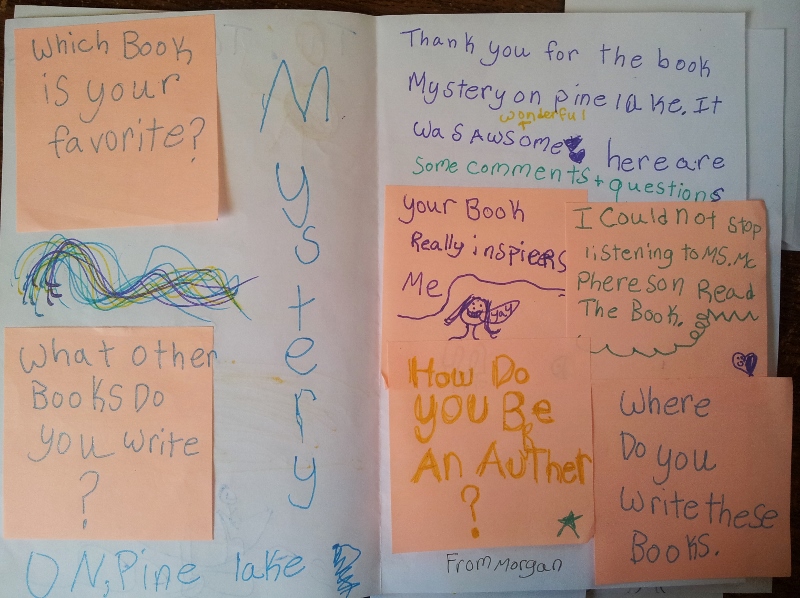 Which Book
is your
favorite?
What other
Books Do
you write
?
Mystery
ON, Pine lake
Thank you for the book
Mystery on pine lake. It
wonderful
was awsome here are
some comments + questions
your Book
Really inspieers
Me
yay
I Could not stop
listening to MS. Mc
Phereson Read
The Book.
How Do
you Be
An AuTher
?
Where
Do you
write these
Books.
From Morgan